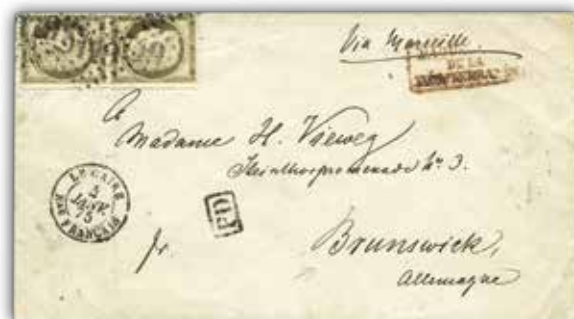 Via Marseille.
DE LA
A
Madame H. Vieweg
Steinthorpromenade No 3.
LE CAIRE
5
JANV.
75
Bau FRANÇAIS
PD
fr.
Brunswick,
Allemagne